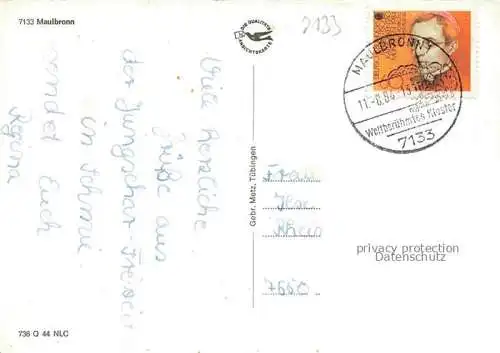 7133 Maulbronn
DIE QUALITÄTS
ANSICHTSKARTE
7133
MAULBRONN 1
11.-8.84
Weltberühmtes Kloster
7133
Viele herzliche
Grüße aus
der Jungschar-Freizeit
in Schmie
sendet Euch
Regina
Gebr. Metz, Tübingen
Frau
Rhein
7550
privacy protection
Datenschutz
736 Q 44 NLC